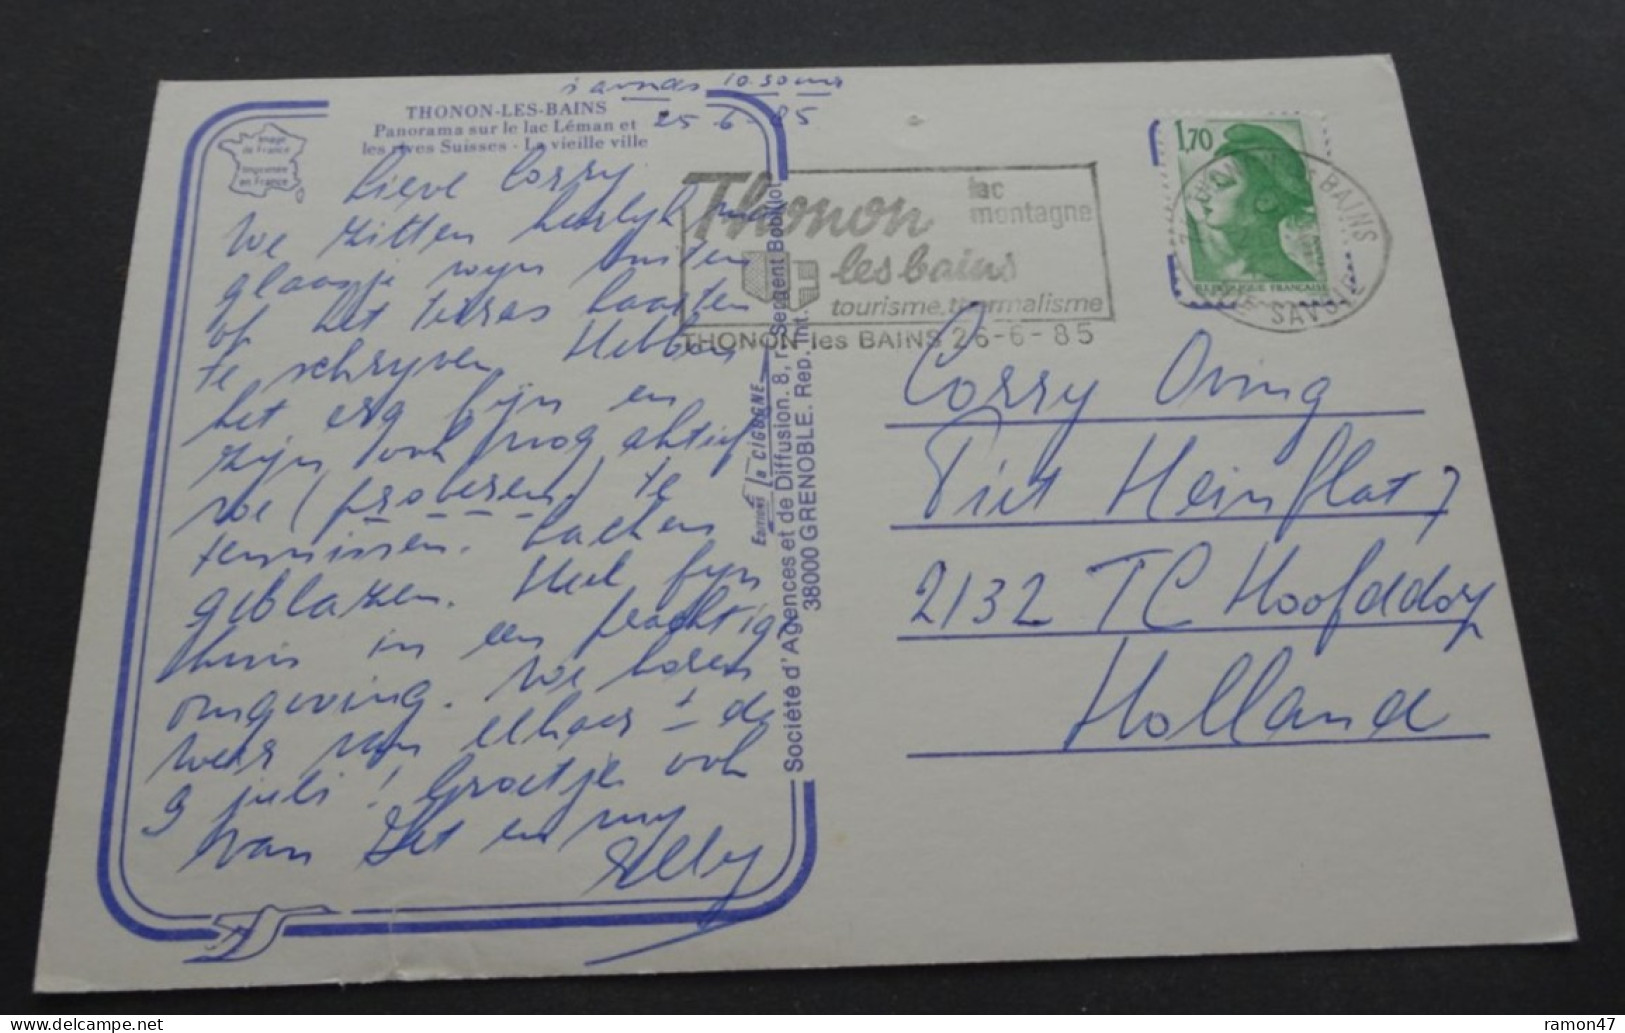 's avonds 10.30 uur
25-6-85
THONON-LES-BAINS
Panorama sur le lac Léman et
les rives Suisses - La vieille ville
Image
de France
Imprimée
en France
Lieve Corry
We zitten heerlijk met
glaasje wijn buiten
op het terras kaarten
te schrijven. Hebben
het erg fijn en
zijn ook nog aktief
we (proberen) te
tennissen. Lachen
geblazen. Heel fijn
huis in een prachtige
omgeving. We horen
weer van elkaar ± de
9 juli! Groetjes ook
van Jet en my
Elly
Editions La CIGOGNE
Société d'Agences et de Diffusion. 8, r. Sergent Bobillot
38000 GRENOBLE. Rep. Int.
Thonon
les bains
lac
montagne
tourisme, thermalisme
THONON les BAINS 26-6-85
1,70
REPUBLIQUE FRANÇAISE
BAINS
SAVOIE
Corry Oving
Piet Heinflat 7
2132 TC Hoofddorp
Holland
ramon47